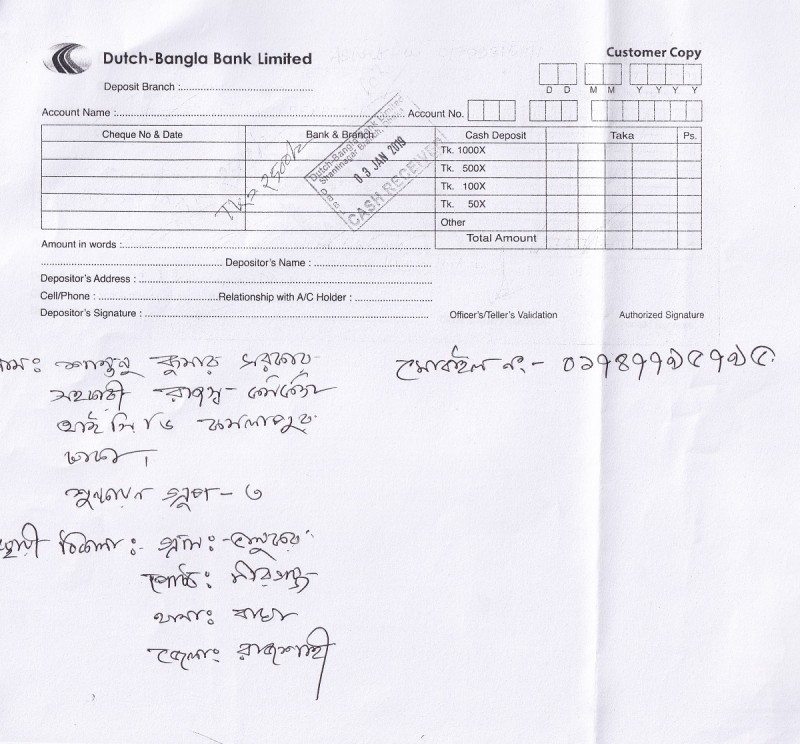 Customer Copy
Dutch-Bangla Bank Limited
Deposit Branch :
D D M M Y Y Y Y
Account Name : Account No.
Cheque No & Date Bank & Branch Cash Deposit Taka Ps.
Tk. 1000X
Tk. 500X
Tk. 100X
Tk. 50X
Other
Total Amount
Dutch-Bangla Bank Limited
Shantinagar Branch, Dhaka
03 JAN 2019
CASH RECEIVED
Tk = 2500/=
Amount in words :
Depositor's Name :
Depositor's Address :
Cell/Phone : Relationship with A/C Holder :
Depositor's Signature : Officer's/Teller's Validation Authorized Signature
কুমার সরকার
মোবাইল নং:-
সহকারী রাজস্ব কর্মকর্তা
আই সি ডি কমলাপুর
ঢাকা।
গ্রুপ - ৩
স্থায়ী ঠিকানা: গ্রাম:-
পোষ্ট: মীরগঞ্জ
থানা: বাঘা
জেলা: রাজশাহী